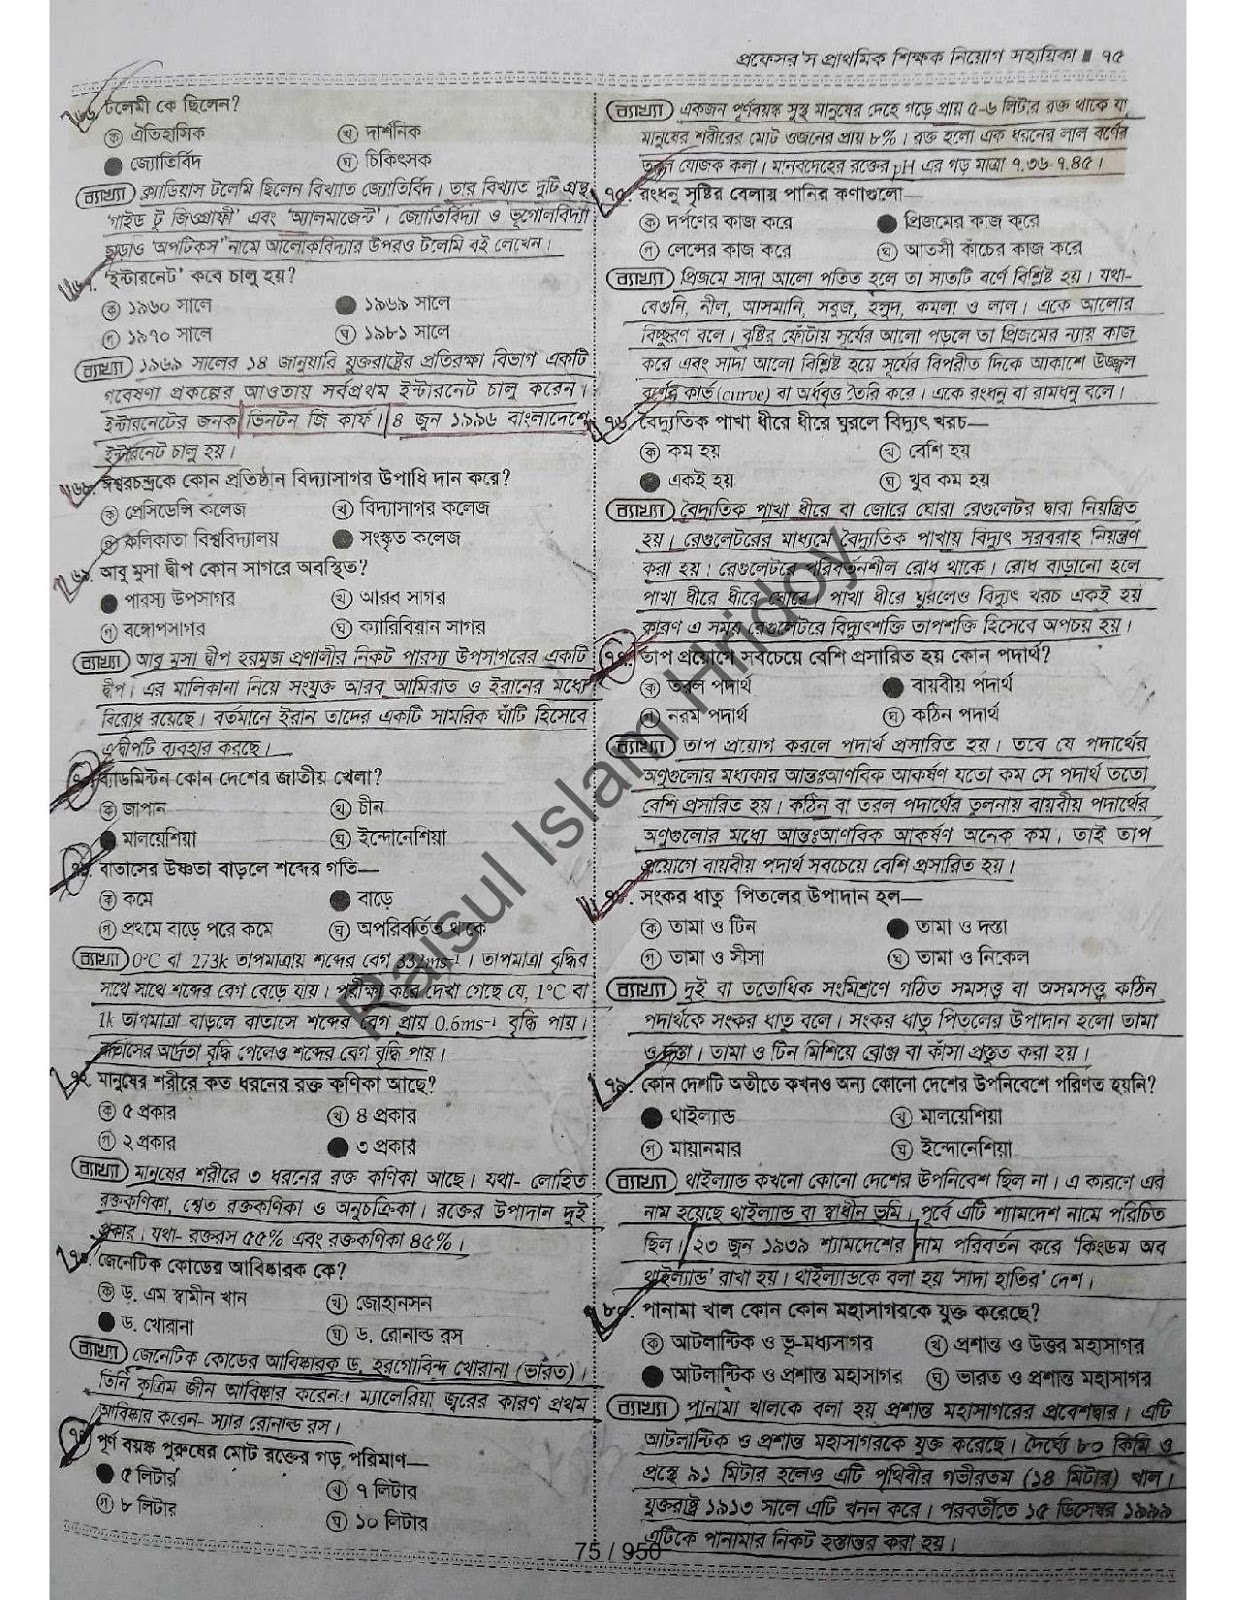 প্রফেসর'স প্রাথমিক শিক্ষক নিয়োগ সহায়িকা ■ ৭৫
৬৬. টলেমী কে ছিলেন?
ক ঐতিহাসিক খ দার্শনিক
● জ্যোতির্বিদ ঘ চিকিৎসক
ব্যাখ্যা ক্ল্যাডিয়াস টলেমি ছিলেন বিখ্যাত জ্যোতির্বিদ। তার বিখ্যাত দুটি গ্রন্থ
'গাইড টু জিওগ্রাফী' এবং 'অ্যালমাজেস্ট'। জ্যোতির্বিদ্যা ও ভূগোলবিদ্যা
ছাড়াও 'অপটিকস' নামে আলোকবিদ্যার উপরও টলেমি বই লেখেন।
৬৭. 'ইন্টারনেট' কবে চালু হয়?
ক ১৯৬০ সালে ● ১৯৬৯ সালে
গ ১৯৭০ সালে ঘ ১৯৮১ সালে
ব্যাখ্যা ১৯৬৯ সালের ১৪ জানুয়ারি যুক্তরাষ্ট্রের প্রতিরক্ষা বিভাগ একটি
গবেষণা প্রকল্পের আওতায় সর্বপ্রথম ইন্টারনেট চালু করেন।
ইন্টারনেটের জনক ভিনটন জি কার্ফ। ৪ জুন ১৯৯৬ বাংলাদেশে
ইন্টারনেট চালু হয়।
৬৮. ঈশ্বরচন্দ্রকে কোন প্রতিষ্ঠান বিদ্যাসাগর উপাধি দান করে?
ক প্রেসিডেন্সি কলেজ খ বিদ্যাসাগর কলেজ
গ কলিকাতা বিশ্ববিদ্যালয় ● সংস্কৃত কলেজ
৬৯. আবু মুসা দ্বীপ কোন সাগরে অবস্থিত?
● পারস্য উপসাগর খ আরব সাগর
গ বঙ্গোপসাগর ঘ ক্যারিবিয়ান সাগর
ব্যাখ্যা আবু মুসা দ্বীপ হরমুজ প্রণালীর নিকট পারস্য উপসাগরের একটি
দ্বীপ। এর মালিকানা নিয়ে সংযুক্ত আরব আমিরাত ও ইরানের মধ্যে
বিরোধ রয়েছে। বর্তমানে ইরান তাদের একটি সামরিক ঘাঁটি হিসেবে
এ দ্বীপটি ব্যবহার করছে।
৭০. ব্যাডমিন্টন কোন দেশের জাতীয় খেলা?
ক জাপান খ চীন
● মালয়েশিয়া ঘ ইন্দোনেশিয়া
৭১. বাতাসের উষ্ণতা বাড়লে শব্দের গতি—
ক কমে ● বাড়ে
গ প্রথমে বাড়ে পরে কমে ঘ অপরিবর্তিত থাকে
ব্যাখ্যা 0°C বা 273k তাপমাত্রায় শব্দের বেগ 332ms⁻¹। তাপমাত্রা বৃদ্ধির
সাথে সাথে শব্দের বেগ বেড়ে যায়। পরীক্ষা করে দেখা গেছে যে, 1°C বা
1k তাপমাত্রা বাড়লে বাতাসে শব্দের বেগ প্রায় 0.6ms⁻¹ বৃদ্ধি পায়।
বাতাসের আর্দ্রতা বৃদ্ধি পেলেও শব্দের বেগ বৃদ্ধি পায়।
৭২. মানুষের শরীরে কত ধরনের রক্ত কণিকা আছে?
ক ৫ প্রকার খ ৪ প্রকার
গ ২ প্রকার ● ৩ প্রকার
ব্যাখ্যা মানুষের শরীরে ৩ ধরনের রক্ত কণিকা আছে। যথা- লোহিত
রক্তকণিকা, শ্বেত রক্তকণিকা ও অনুচক্রিকা। রক্তের উপাদান দুই
প্রকার। যথা- রক্তরস ৫৫% এবং রক্তকণিকা ৪৫%।
৭৩. জেনেটিক কোডের আবিষ্কারক কে?
ক ড. এম স্বামীন খান খ জোহানসন
● ড. খোরানা ঘ ড. রোনাল্ড রস
ব্যাখ্যা জেনেটিক কোডের আবিষ্কারক ড. হরগোবিন্দ খোরানা (ভারত)।
তিনি কৃত্রিম জীন আবিষ্কার করেন। ম্যালেরিয়া জ্বরের কারণ প্রথম
আবিষ্কার করেন- স্যার রোনাল্ড রস।
৭৪. পূর্ণ বয়স্ক পুরুষের মোট রক্তের গড় পরিমাণ—
● ৫ লিটার খ ৭ লিটার
গ ৮ লিটার ঘ ১০ লিটার
ব্যাখ্যা একজন পূর্ণবয়স্ক সুস্থ মানুষের দেহে গড়ে প্রায় ৫-৬ লিটার রক্ত থাকে যা
মানুষের শরীরের মোট ওজনের প্রায় ৮%। রক্ত হলো এক ধরনের লাল বর্ণের
তরল যোজক কলা। মানবদেহের রক্তের pH এর গড় মাত্রা ৭.৩৬-৭.৪৫।
৭৫. রংধনু সৃষ্টির বেলায় পানির কণাগুলো—
ক দর্পণের কাজ করে ● প্রিজমের কাজ করে
গ লেন্সের কাজ করে ঘ আতসী কাঁচের কাজ করে
ব্যাখ্যা প্রিজমে সাদা আলো পতিত হলে তা সাতটি বর্ণে বিশ্লিষ্ট হয়। যথা-
বেগুনি, নীল, আসমানি, সবুজ, হলুদ, কমলা ও লাল। একে আলোর
বিচ্ছুরণ বলে। বৃষ্টির ফোঁটায় সূর্যের আলো পড়লে তা প্রিজমের ন্যায় কাজ
করে এবং সাদা আলো বিশ্লিষ্ট হয়ে সূর্যের বিপরীত দিকে আকাশে উজ্জ্বল
বর্ণের কার্ভ (curve) বা অর্ধবৃত্ত তৈরি করে। একে রংধনু বা রামধনু বলে।
৭৬. বৈদ্যুতিক পাখা ধীরে ধীরে ঘুরলে বিদ্যুৎ খরচ—
ক কম হয় খ বেশি হয়
● একই হয় ঘ খুব কম হয়
ব্যাখ্যা বৈদ্যুতিক পাখা ধীরে বা জোরে ঘোরা রেগুলেটর দ্বারা নিয়ন্ত্রিত
হয়। রেগুলেটরের মাধ্যমে বৈদ্যুতিক পাখায় বিদ্যুৎ সরবরাহ নিয়ন্ত্রণ
করা হয়। রেগুলেটরে পরিবর্তনশীল রোধ থাকে। রোধ বাড়ানো হলে
পাখা ধীরে ধীরে ঘোরে। পাখা ধীরে ঘুরলেও বিদ্যুৎ খরচ একই হয়
কারণ এ সময় রেগুলেটরে বিদ্যুৎশক্তি তাপশক্তি হিসেবে অপচয় হয়।
৭৭. তাপ প্রয়োগে সবচেয়ে বেশি প্রসারিত হয় কোন পদার্থ?
ক তরল পদার্থ ● বায়বীয় পদার্থ
গ নরম পদার্থ ঘ কঠিন পদার্থ
ব্যাখ্যা তাপ প্রয়োগ করলে পদার্থ প্রসারিত হয়। তবে যে পদার্থের
অণুগুলোর মধ্যকার আন্তঃআণবিক আকর্ষণ যতো কম সে পদার্থ ততো
বেশি প্রসারিত হয়। কঠিন বা তরল পদার্থের তুলনায় বায়বীয় পদার্থের
অণুগুলোর মধ্যে আন্তঃআণবিক আকর্ষণ অনেক কম। তাই তাপ
প্রয়োগে বায়বীয় পদার্থ সবচেয়ে বেশি প্রসারিত হয়।
৭৮. সংকর ধাতু পিতলের উপাদান হল—
ক তামা ও টিন ● তামা ও দস্তা
গ তামা ও সীসা ঘ তামা ও নিকেল
ব্যাখ্যা দুই বা ততোধিক সংমিশ্রণে গঠিত সমসত্ত্ব বা অসমসত্ত্ব কঠিন
পদার্থকে সংকর ধাতু বলে। সংকর ধাতু পিতলের উপাদান হলো তামা
ও দস্তা। তামা ও টিন মিশিয়ে ব্রোঞ্জ বা কাঁসা প্রস্তুত করা হয়।
৭৯. কোন দেশটি অতীতে কখনও অন্য কোনো দেশের উপনিবেশে পরিণত হয়নি?
● থাইল্যান্ড খ মালয়েশিয়া
গ মায়ানমার ঘ ইন্দোনেশিয়া
ব্যাখ্যা থাইল্যান্ড কখনো কোনো দেশের উপনিবেশ ছিল না। এ কারণে এর
নাম হয়েছে থাইল্যান্ড বা স্বাধীন ভূমি। পূর্বে এটি শ্যামদেশ নামে পরিচিত
ছিল। ২৩ জুন ১৯৩৯ শ্যামদেশের নাম পরিবর্তন করে 'কিংডম অব
থাইল্যান্ড' রাখা হয়। থাইল্যান্ডকে বলা হয় 'সাদা হাতির' দেশ।
৮০. পানামা খাল কোন কোন মহাসাগরকে যুক্ত করেছে?
ক আটলান্টিক ও ভূ-মধ্যসাগর খ প্রশান্ত ও উত্তর মহাসাগর
● আটলান্টিক ও প্রশান্ত মহাসাগর ঘ ভারত ও প্রশান্ত মহাসাগর
ব্যাখ্যা পানামা খালকে বলা হয় প্রশান্ত মহাসাগরের প্রবেশদ্বার। এটি
আটলান্টিক ও প্রশান্ত মহাসাগরকে যুক্ত করেছে। দৈর্ঘ্যে ৮০ কিমি ও
প্রস্থে ৯১ মিটার হলেও এটি পৃথিবীর গভীরতম (১৪ মিটার) খাল।
যুক্তরাষ্ট্র ১৯১৩ সালে এটি খনন করে। পরবর্তীতে ১৫ ডিসেম্বর ১৯৯৯
এটিকে পানামার নিকট হস্তান্তর করা হয়।
Raisul Islam Hridoy
75 / 950